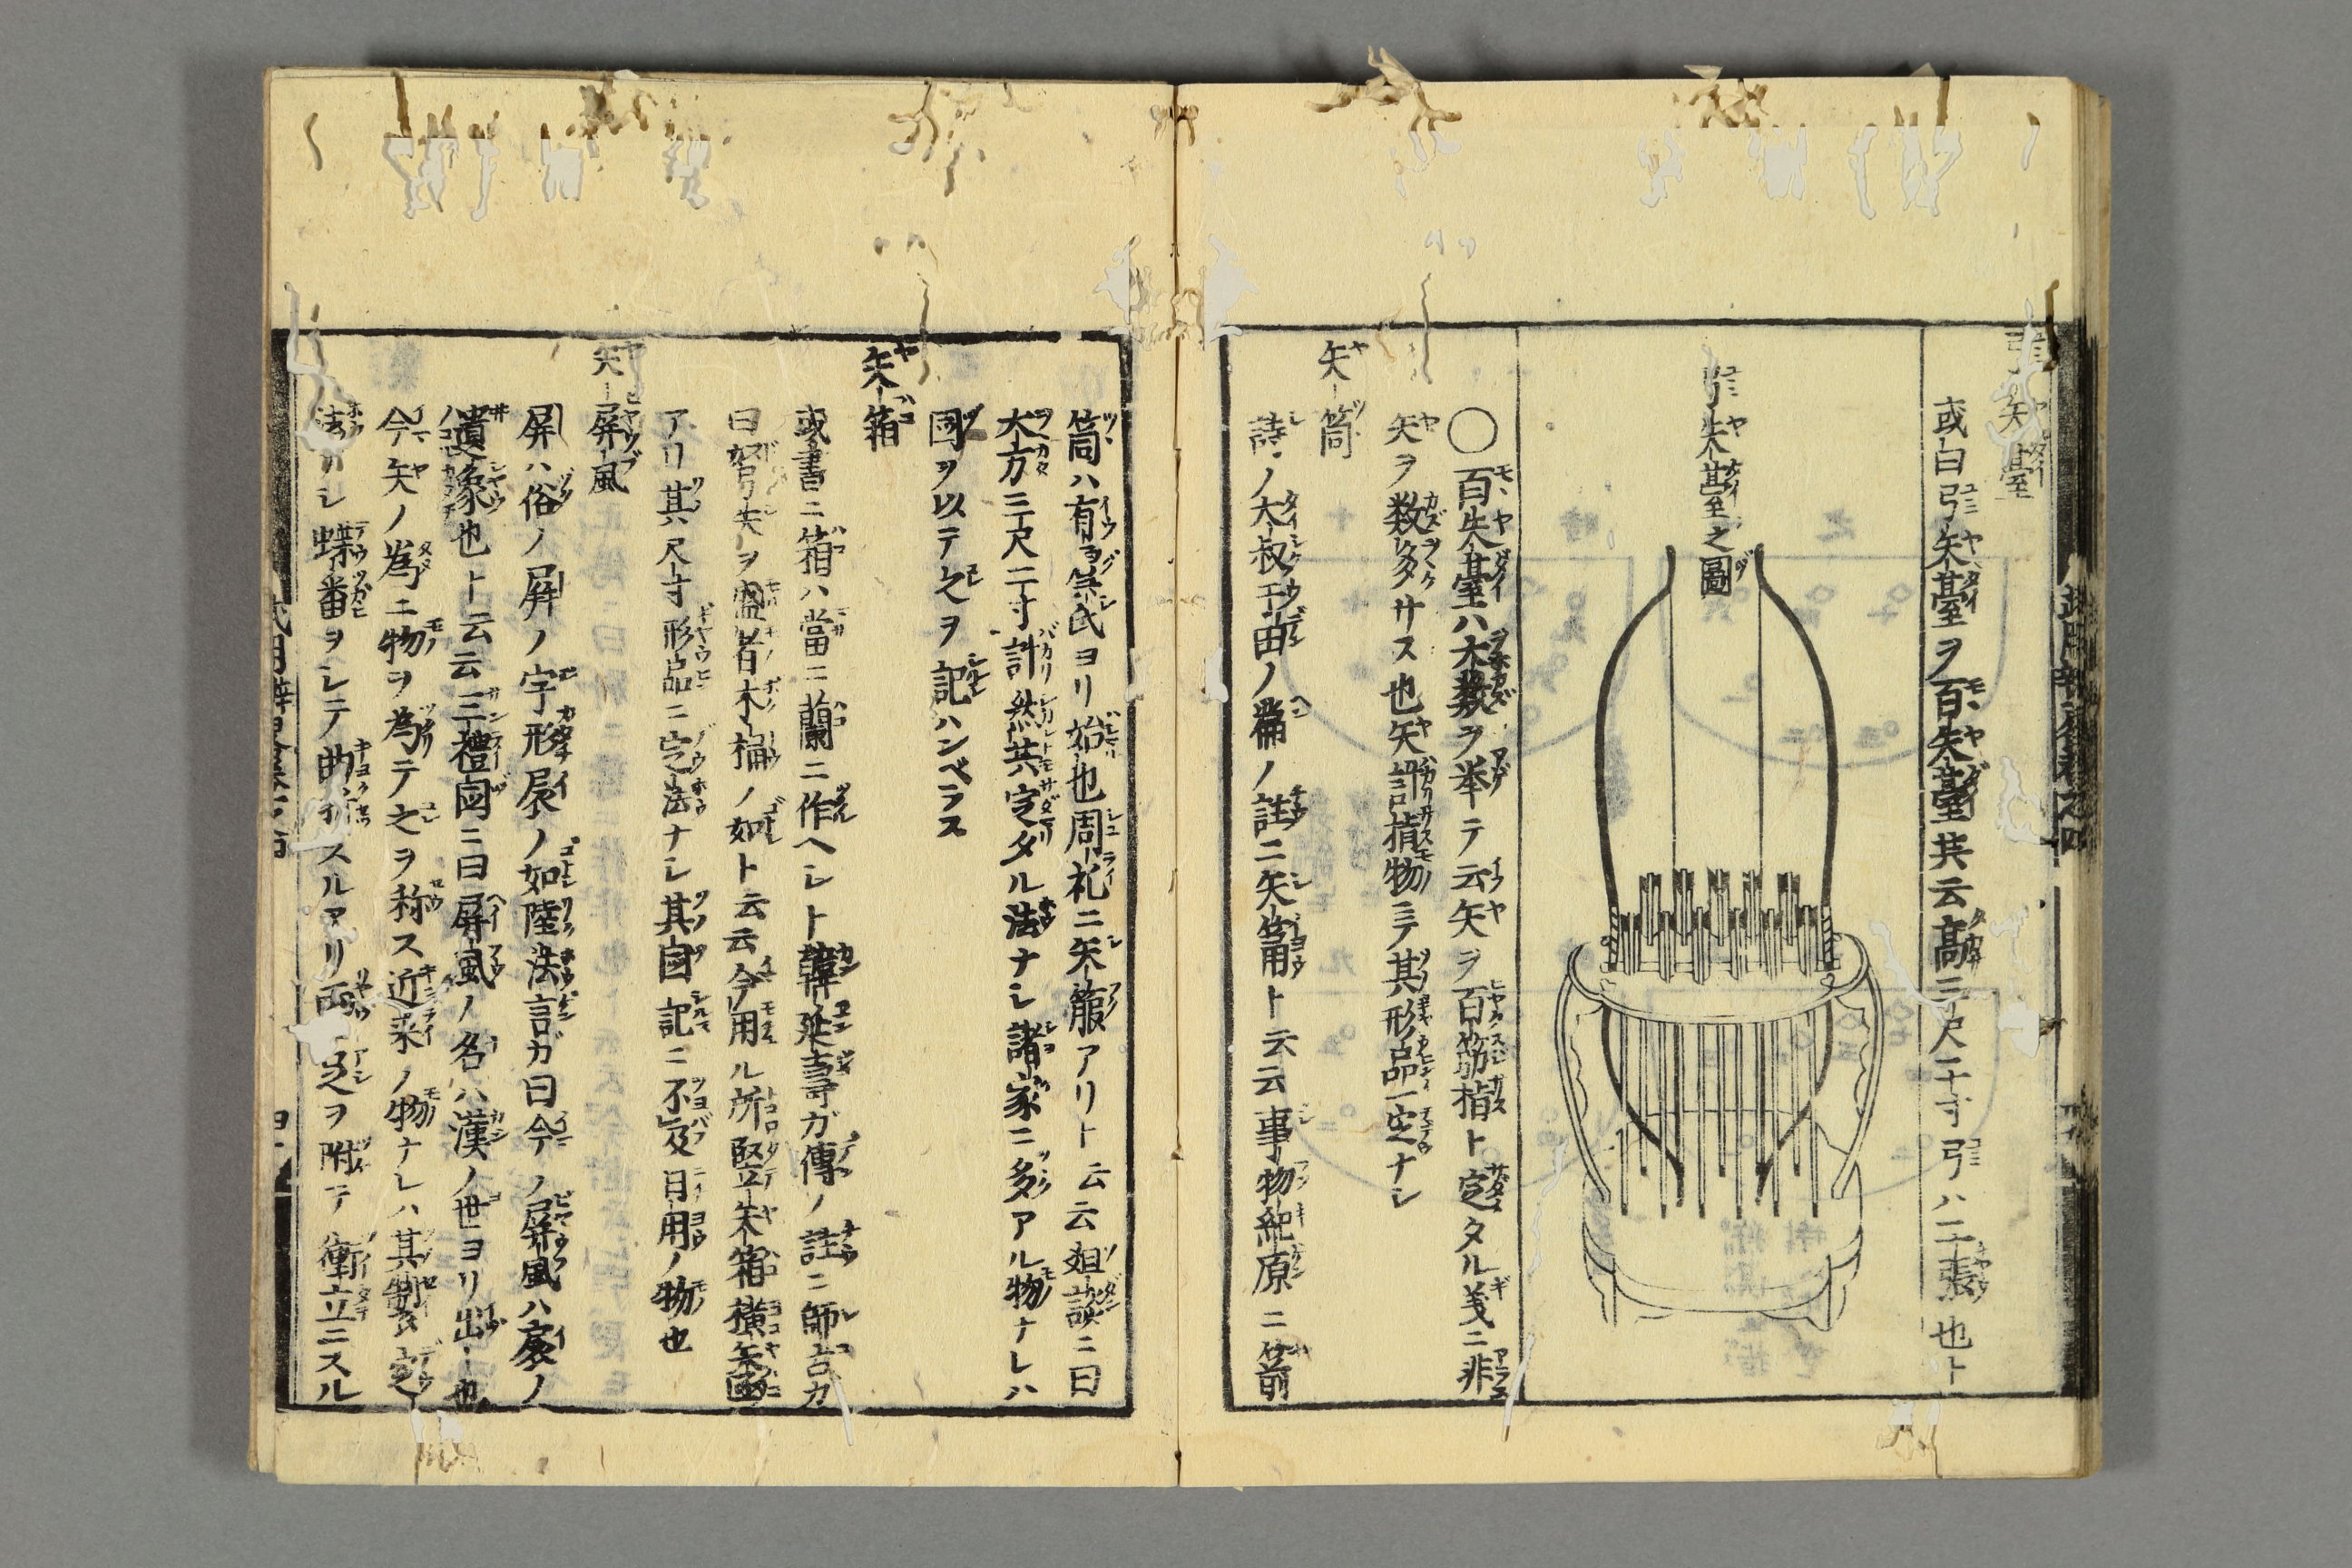 弓矢臺
或曰弓矢臺ヲ百矢臺共云高三尺二寸弓ハ二張也ト
弓矢臺之圖
○百矢臺ハ大數ヲ举テ云矢ヲ百筋揹ト定タル義ニ非
矢ヲ数多サス也矢計揹物ニテ其形品一定ナシ
矢筒
詩ノ大叔于田ノ篇ノ註ニ矢筩ト云云事物紀原ニ箭
筒ハ有窮氏ヨリ始也周礼ニ矢箙アリト云云俎談ニ曰
大方三尺二寸計然共定タル法ナシ諸家ニ多アル物ナレハ
國ヲ以テ之ヲ記ハンベラス
矢箱
或書ニ箱ハ當ニ蘭ニ作ヘレト韓延壽ガ傳ノ註ニ師古カ
曰弩矢ヲ盛者木桶ノ如ト云云今用ル所竪矢箱横矢凾
アリ其尺寸形品ニ定法ナシ其圖記ニ不及日用ノ物也
矢屏風
屏ハ俗ノ屏ノ字形扆ノ如陸法言ガ曰今ノ屏風ハ扆ノ
遺象也ト云云三禮図ニ曰屏風ノ名ハ漢ノ世ヨリ出也
今矢ノ為ニ物ヲ為テ之ヲ称ス近来ノ物ナレハ其製定
法ナシ蝶番ヲシテ曲スルアリ両足ヲ附テ衝立ニスル